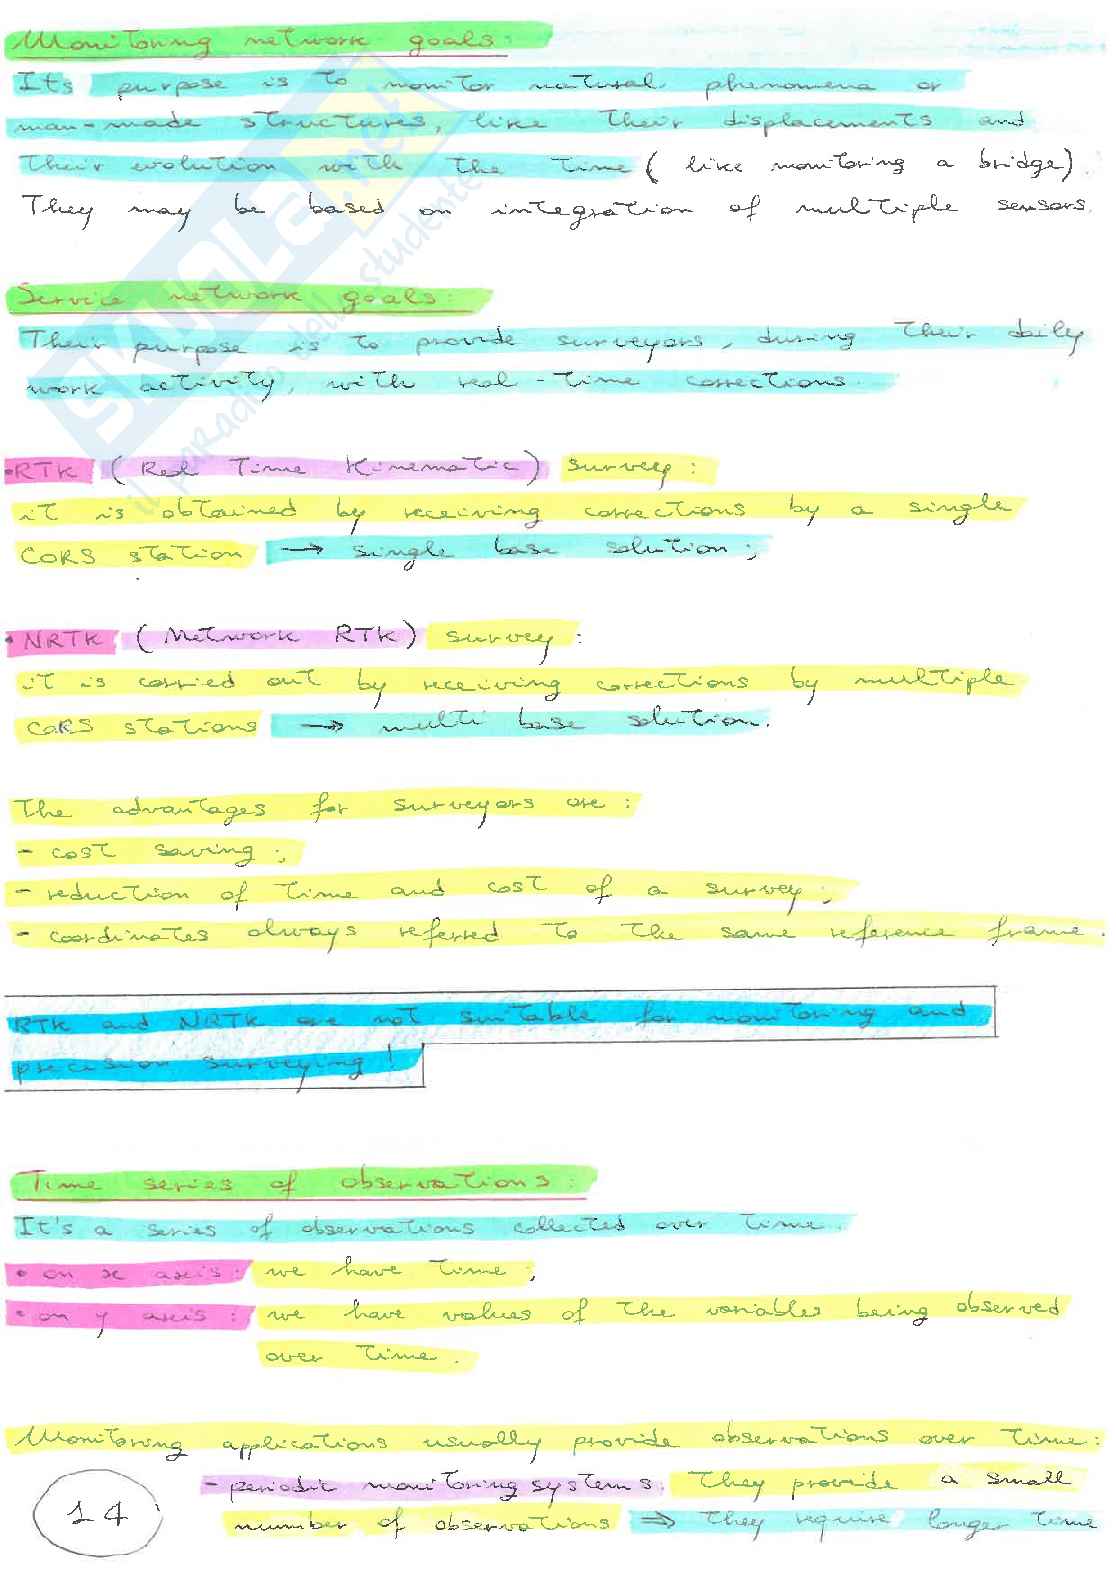 Monitoring network goals:
Its purpose is to monitor natural phenomena or
man-made structures, like their displacements and
their evolution with the time (like monitoring a bridge).
They may be based on integration of multiple sensors.
Service network goals:
Their purpose is to provide surveyors, during their daily
work activity, with real-time corrections.
• RTK (Real Time Kinematic) survey:
it is obtained by receiving corrections by a single
CORS station → single base solution;
• NRTK (Network RTK) survey:
it is carried out by receiving corrections by multiple
CORS stations → multi base solution.
The advantages for surveyors are:
- cost saving;
- reduction of time and cost of a survey;
- coordinates always referred to the same reference frame.
RTK and NRTK are not suitable for monitoring and
precision surveying!
Time series of observations:
It's a series of observations collected over time.
• on x axis: we have time;
• on y axis: we have values of the variables being observed
over time.
Monitoring applications usually provide observations over time:
- periodic monitoring systems: they provide a small
number of observations ⇒ they require longer time
14
SKUOLA.net
il paradiso dello studente